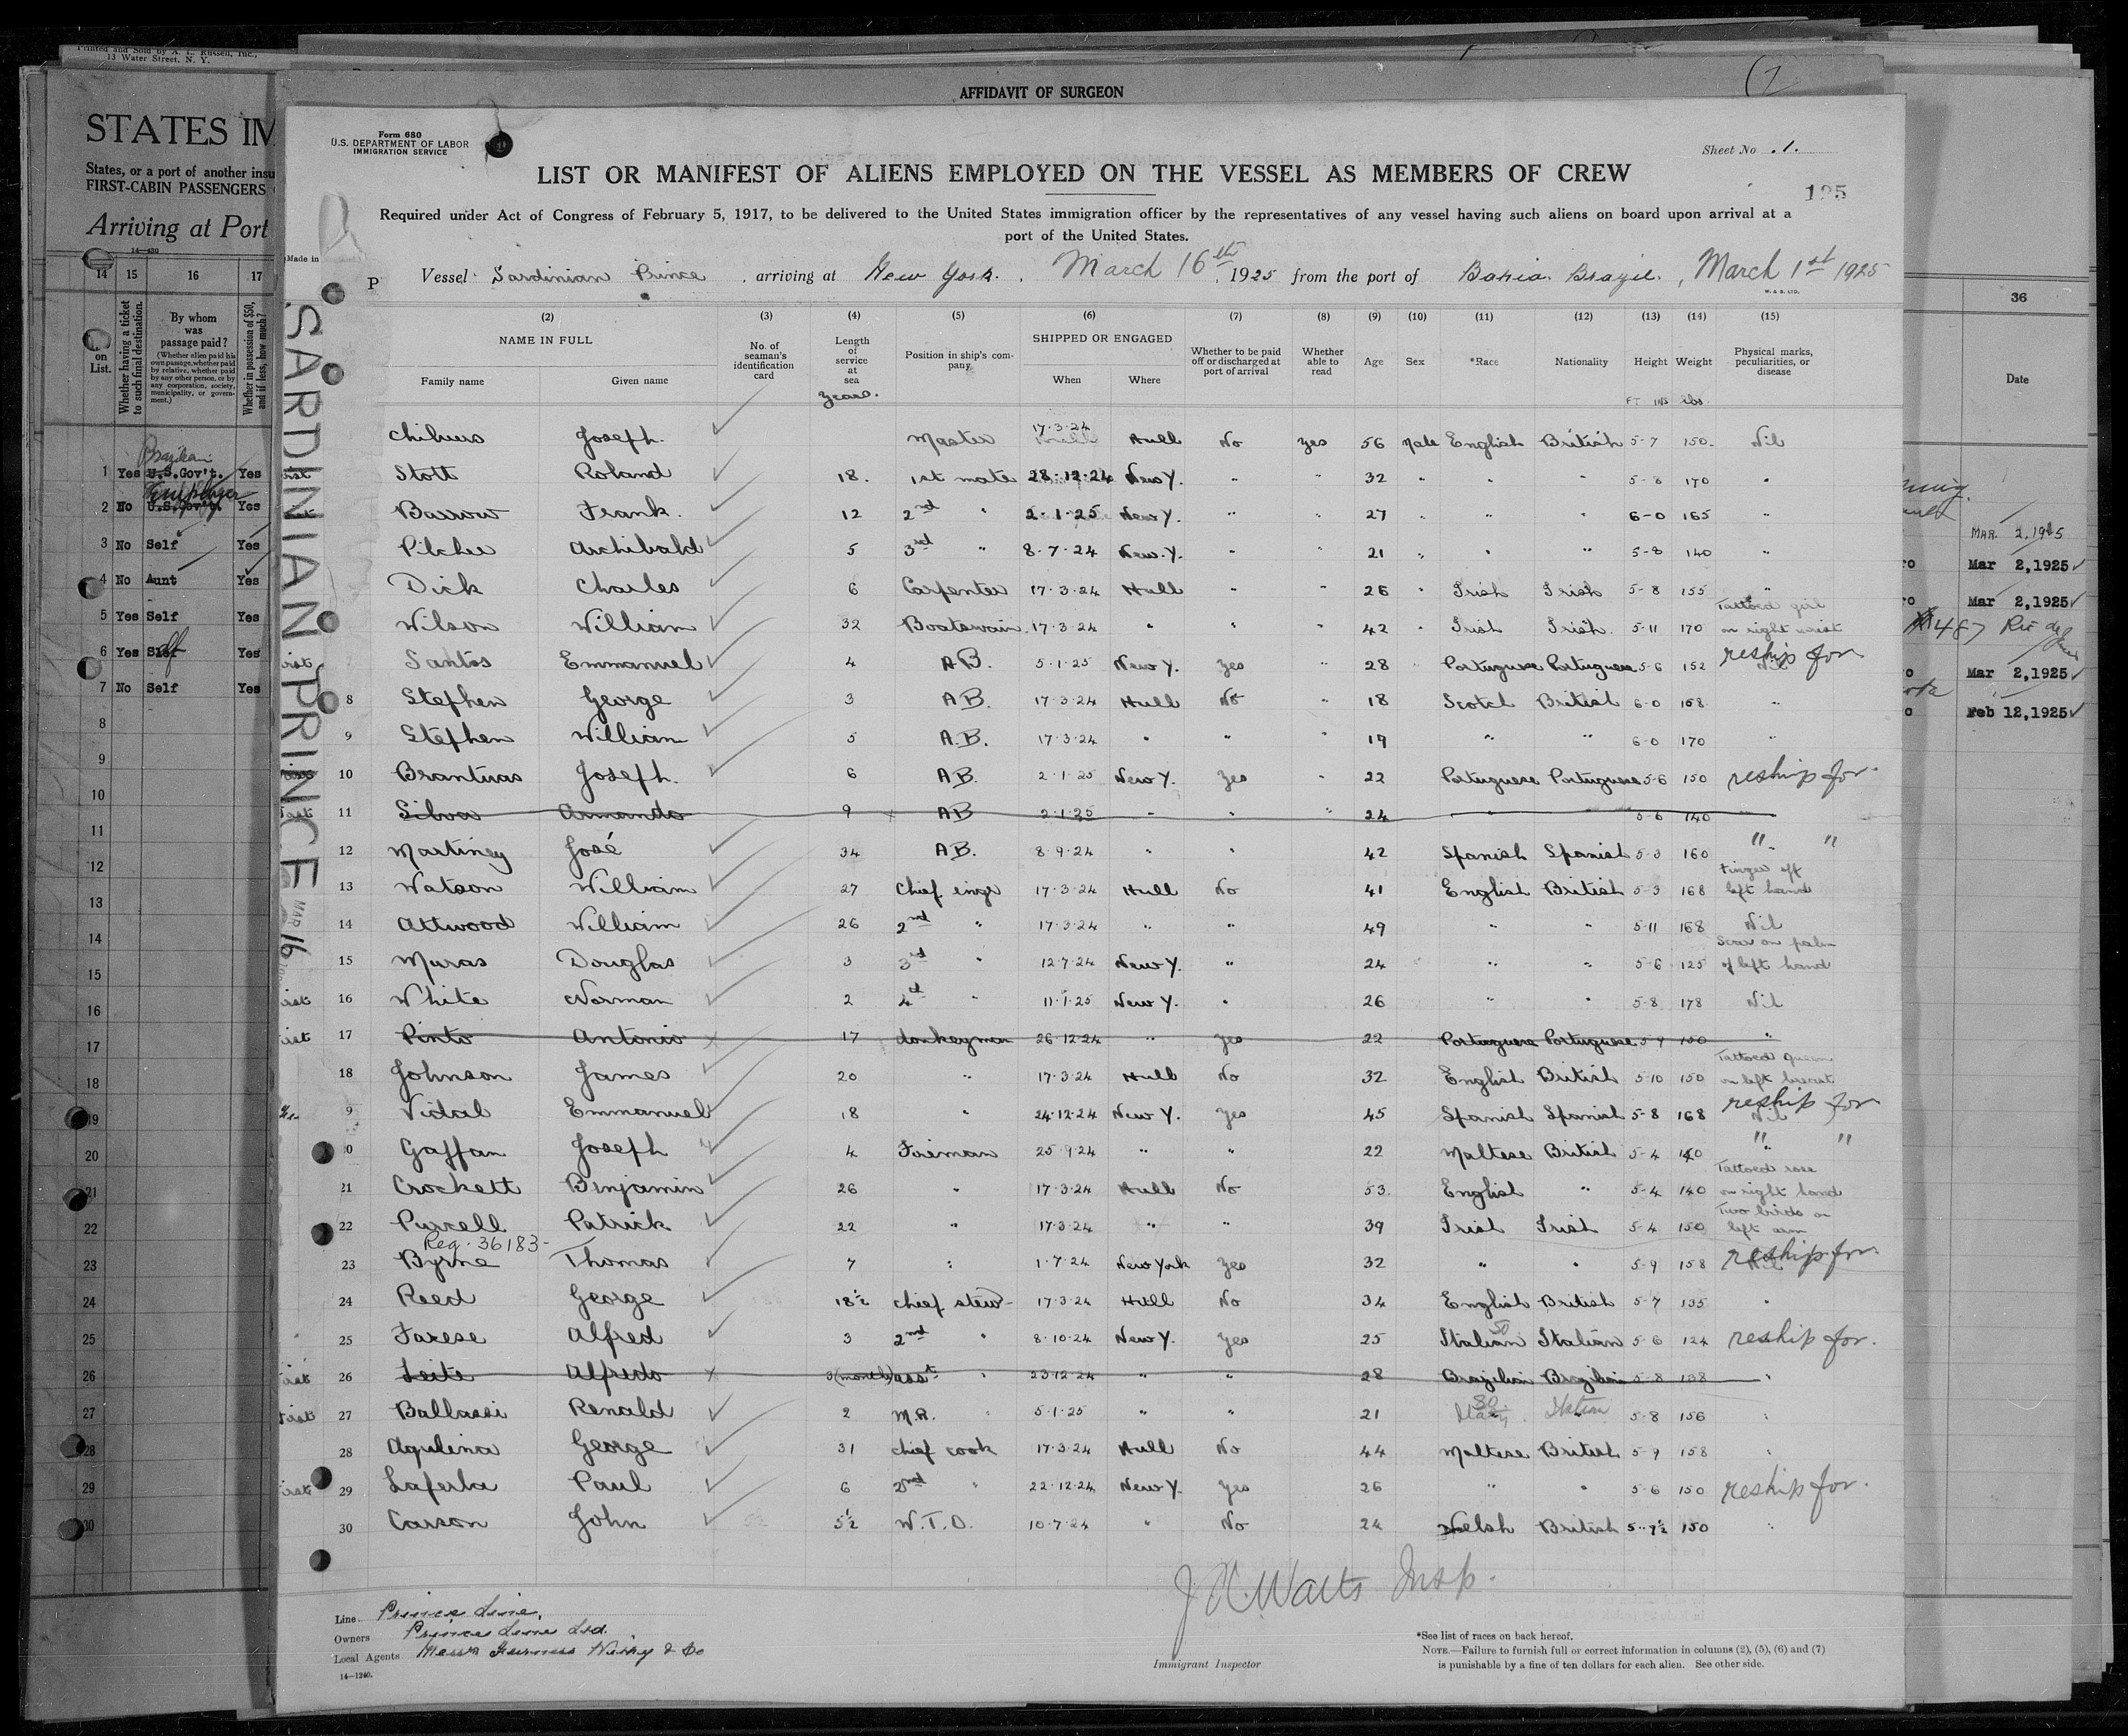 Printed and Sold by A. L. Russell, Inc.,
13 Water Street, N. Y.
AFFIDAVIT OF SURGEON
STATES IM
States, or a port of another insu
FIRST-CABIN PASSENGERS
Arriving at Port
14—430
14 15 16 17
on List.
Whether having a ticket to such final destination.
By whom was passage paid?
(Whether alien paid his own passage, whether paid by relative, whether paid by any other person, or by any corporation, society, municipality, or government.)
Whether in possession of $50, and if less, how much?
Brazilian
1 Yes U.S.Gov't. Yes
2 No U.S.Gov't. Yes
3 No Self Yes
4 No Aunt Yes
5 Yes Self Yes
6 Yes Yes
7 No Self Yes
8
9
10
11
12
13
14
15
16
17
18
19
20
21
22
23
24
25
26
27
28
29
30
Form 680
U.S. DEPARTMENT OF LABOR
IMMIGRATION SERVICE
Sheet No. 1.
LIST OR MANIFEST OF ALIENS EMPLOYED ON THE VESSEL AS MEMBERS OF CREW
195
Required under Act of Congress of February 5, 1917, to be delivered to the United States immigration officer by the representatives of any vessel having such aliens on board upon arrival at a
port of the United States.
Made in
Vessel Sardinian Prince, arriving at New York. March 16th, 1925 from the port of Bahia Brazil, March 1st 1925
W. & S. LTD.
SARDINIAN PRINCE MAR 16
(2) (3) (4) (5) (6) (7) (8) (9) (10) (11) (12) (13) (14) (15)
NAME IN FULL
Family name Given name
No. of seaman's identification card
Length of service at sea
years.
Position in ship's company
SHIPPED OR ENGAGED
When Where
Whether to be paid off or discharged at port of arrival
Whether able to read
Age Sex *Race Nationality Height Weight
Physical marks, peculiarities, or disease
FT INS lbs.
Joseph. Master 17.3.24 Hull No Yes 56 Male English British 5-7 150 Nil
Stott Roland 18. 1st mate 28.12.24 New Y. " " 32 " " " 5-8 170 "
Barrow Frank. 12 2nd " 2.1.25 New Y. " " 27 " " " 6-0 165 "
Pilcher Archibald 5 3rd " 8.7.24 New Y. " " 21 " " " 5-8 140 "
Dick Charles 6 Carpenter 17.3.24 Hull " " 26 " Irish Irish 5-8 155 "
Wilson William 32 Boatswain 17.3.24 " " " 42 " Irish Irish. 5-11 170 Tattoed girl on right wrist
Santos Emmanuel 4 AB. 5.1.25 New Y. Yes " 28 Portuguese Portuguese 5-6 152 Nil reship for
8 Stephen George 3 AB. 17.3.24 Hull No " 18 Scotch British 6-0 158 "
9 Stephen William 5 A.B. 17.3.24 " " " 19 " " 6-0 170 "
10 Joseph. 6 AB. 2.1.25 New Y. Yes " 22 Portuguese Portuguese 5-6 150 reship for.
11 Silva Armando 9 AB 2.1.25 " " " 24 " " 5-6 140 "
12 Martinez José 34 AB. 8.9.24 " " 42 Spanish Spanish 5-3 160 " "
13 Watson William 27 Chief engr 17.3.24 Hull No 41 English British 5-3 168 Finger off left hand
14 Attwood William 26 2nd " 17.3.24 " " 49 " " 5-11 168 Nil
15 Muras Douglas 3 3rd " 12.7.24 New Y. " 24 " " 5-6 125 Scar on palm of left hand
16 White Norman 2 4th " 11.1.25 New Y. " 26 " " 5-8 178 Nil
17 Pinto Antonio 17 donkeyman 26.12.24 " Yes 22 Portuguese Portuguese 5-9 150 "
18 Johnson James 20 " 17.3.24 Hull No 32 English British 5-10 150 Tattoed queen on left breast
9 Vidal Emmanuel 18 " 24.12.24 New Y. Yes 45 Spanish Spanish 5-8 168 Nil reship for
0 Gaffan Joseph 4 Fireman 25.9.24 " " 22 Maltese British 5-4 140 " "
21 Crockett Binjamin 26 " 17.3.24 Hull No 53. English " 5-4 140 Tattoed rose on right hand
22 Purcell Patrick 22 " 17.3.24 " " 39 Irish Irish 5-4 150 Two birds on left arm
Reg. 36183-
23 Byrne Thomas 7 " 1.7.24 New York Yes 32 " " 5-9 158 reship for
24 Reed George 18½ Chief stew 17.3.24 Hull No 34 English British 5-7 135 "
25 Farese Alfred 3 2nd " 8.10.24 New Y. Yes 25 Italian Italian 5-6 124 reship for.
26 Leite Alfredo 3(months) asst " 23.12.24 " " 28 Brazilian Brazilian 5-8 138 "
27 Ballassi Renald 2 M.R. " 5.1.25 " " 21 Italian 5-8 156 "
28 Aqulina George 31 Chief cook 17.3.24 Hull No 44 Maltese British 5-9 158 "
29 Laferla Paul 6 2nd " 22.12.24 New Y. Yes 26 " " 5-6 150 reship for.
30 Carson John 5½ W.T.O. 10.7.24 " No 24 Welsh British 5-7½ 150 "
J W. Watts Insp.
Line Prince Line,
Owners Prince Line Ltd.
Local Agents Messrs Furness Withy & Co
14—1240.
Immigrant Inspector
*See list of races on back hereof.
NOTE.—Failure to furnish full or correct information in columns (2), (5), (6) and (7)
is punishable by a fine of ten dollars for each alien. See other side.
36
Date
MAR. 2,1925
Mar 2,1925
Mar 2,1925
487 Rio de
Mar 2,1925
Feb 12,1925